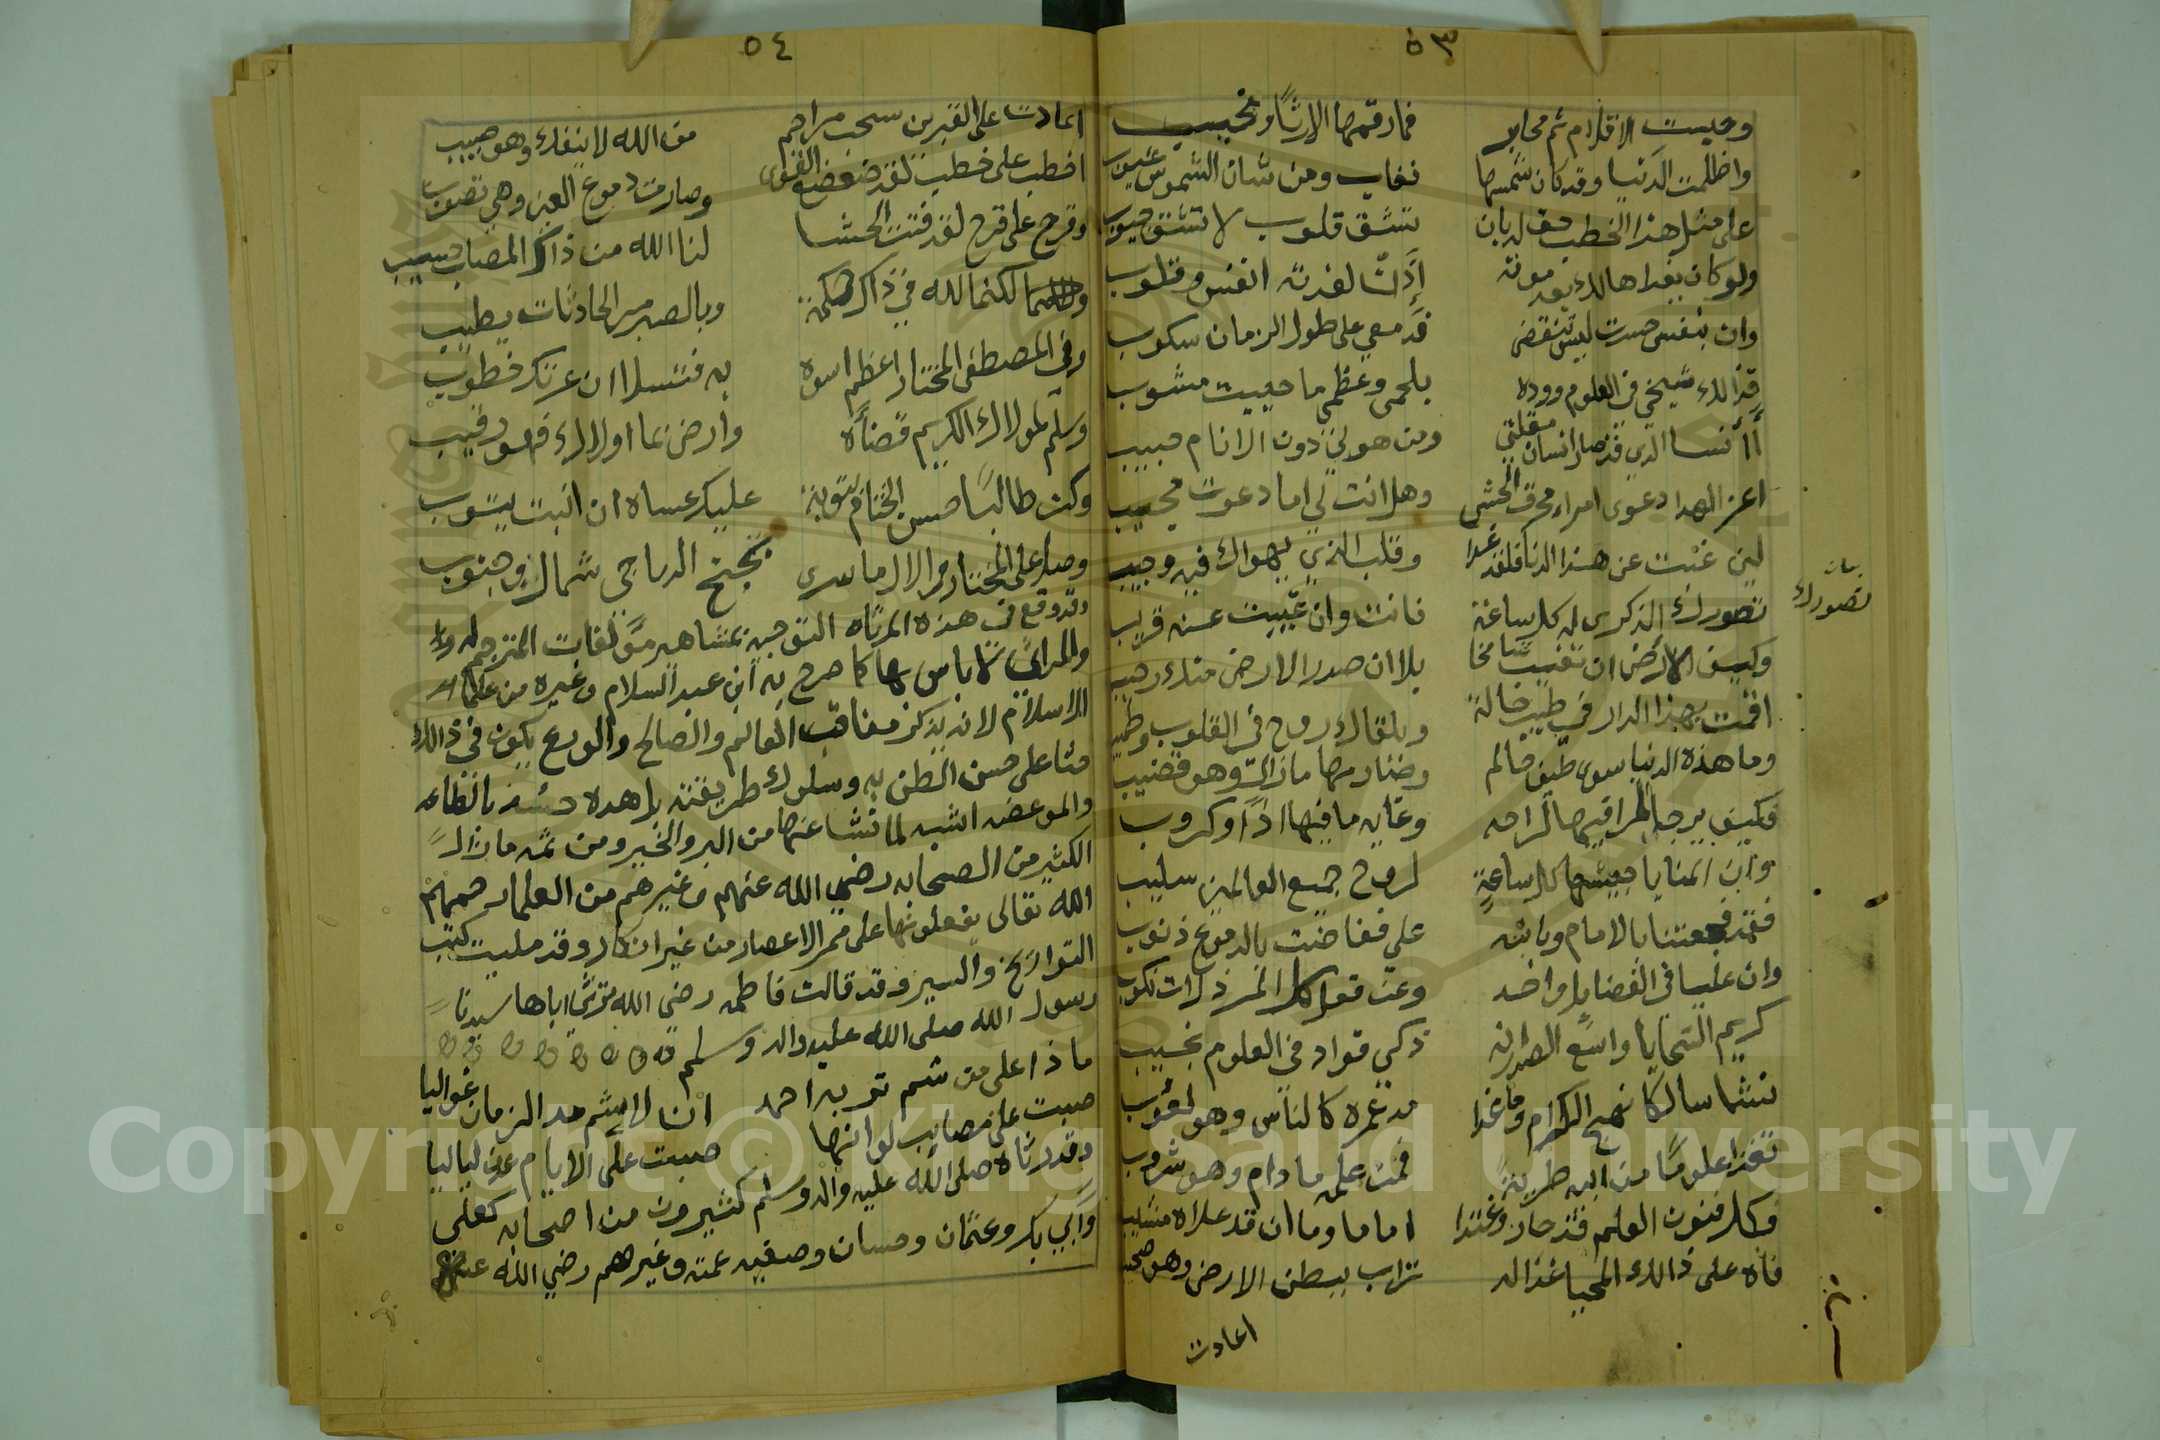 ٥٣
وحيست الاقلام ثم محابر فما رقمها الا رثاً ونحيب
واظلمت الدنيا وقد كان شمسها تغاب ومن شان الشموس غيوب
على مثل هذا الخطب حق له بان تشق قلوب لا تشق جيوب
ولو كان يفداها لك بعد موته إذاً لفدته انفس وقلوب
وان بنفسي حسرت ليس تنقضى فدمعي على طول الزمان سكوب
فذالك شيخي في العلوم ووده بلحمي وعظمي ما حييت مشوب
أأنسا الذي قد صار انسان مقلتي ومن هو لي دون الانام حبيب
اعز الهدا دعوى امراء محرق الحشى وهل انت لي اما دعوت مجيب
لين غبت عن هذا الدنا فلقد غدا وقلب الذي يهواك فيه وجيب
تصورك الذكرى له كل ساعة فانت وان غيبت عنه قريب
تصورك
وكيف الارض ان تغيب شامخا بلا ان صدر الارض منك رحيب
اقمت بهذا الدار في طيب حالة وبلقاك روح في القلوب وطيب
وما هذه الدنيا سوى طيف حالم
فكيف يرجا المرا فيها لراحه وغايه ما فيها اذاً وكروب
وان المنايا جيشها كل ساعةٍ لروح جميع العالمين سليب
فقد فجعتنا بالامام وبابنه علي ففاضت بالدموع ذنوب
وان عليا في الفضايل واحد
كريم السجايا واسع الصدر انه ذكي فواد في العلوم نجيب
نشا سالكا نهج الكرام وما غدا مد عمره كالناس وهو لعوب
تغذا علوما من ابيه طريةً فمن علمه ما دام وهو شروب
وكل فنون العلم قد حاز وغتدا اماما وما ان قد علاه مشيب
فاه على ذالك المحيا غدا له تراب ببطن الارض وهو
اعادت
٥٤
اعادت على القبرين سحب مراحم من الله لا ينفك وهو صبيب
اخطب على خطب لقد ضعضع القوى وصارت دموع العين وهي تصوب
وقرح على قرح لقد فتت الحشا لنا الله من ذاك المصاب حسيب
لكنما لله في ذاك حكمة وبالصبر مر الحادثات يطيب
وفي المصطفى المختار اعظم اسوة به فتسلا ان عرتك خطوب
وسلم لمولاك الكريم قضاأه وارض بما اولاك فهو رقيب
وكن طالباً حسن الختام بتوبة عليك عساه ان انبت يتوب
وصل على المختار مع الال ما سرى بجنح الدياجى شمال وجنوب
وقد وقع في هذه المرثاه التوجيه بمشاهير مؤلفات المترجم له
والمراثي لا باس بها كما صرح به ابن عبد السلام وغيره من علماء
الاسلام لانه يذكر مناقب العالم والصالح والورع يكون في ذالك
حثا على حسن الظن به وسلوك طريقته بل هده حسنه بالطاعه
والموعضه اشبه لما نشا عنها من البر والخير ومن ثمه ما زال
الكثير من الصحابه رضي الله عنهم وغيرهم من العلما رحمهم
الله تعالى يفعلونها على ممر الاعصار من غير انكار وقد مليت كتب
التواريخ والسير وقد قالت فاطمه رضى الله ترثي اباها سيدنا
رسول الله صلى الله عليه واله وسلم
ما ذا على من شم تربه احمد ان لا يشم مد الزمان غواليا
صبت على مصايب لو انها صبت على الايام عدن لياليا
وقد رثاه صلى الله عليه واله وسلم كثيرون من اصحابه كعلى
وأبي بكر وعثمان وحسان وصفيه عمته وغيرهم رضي الله عنهم